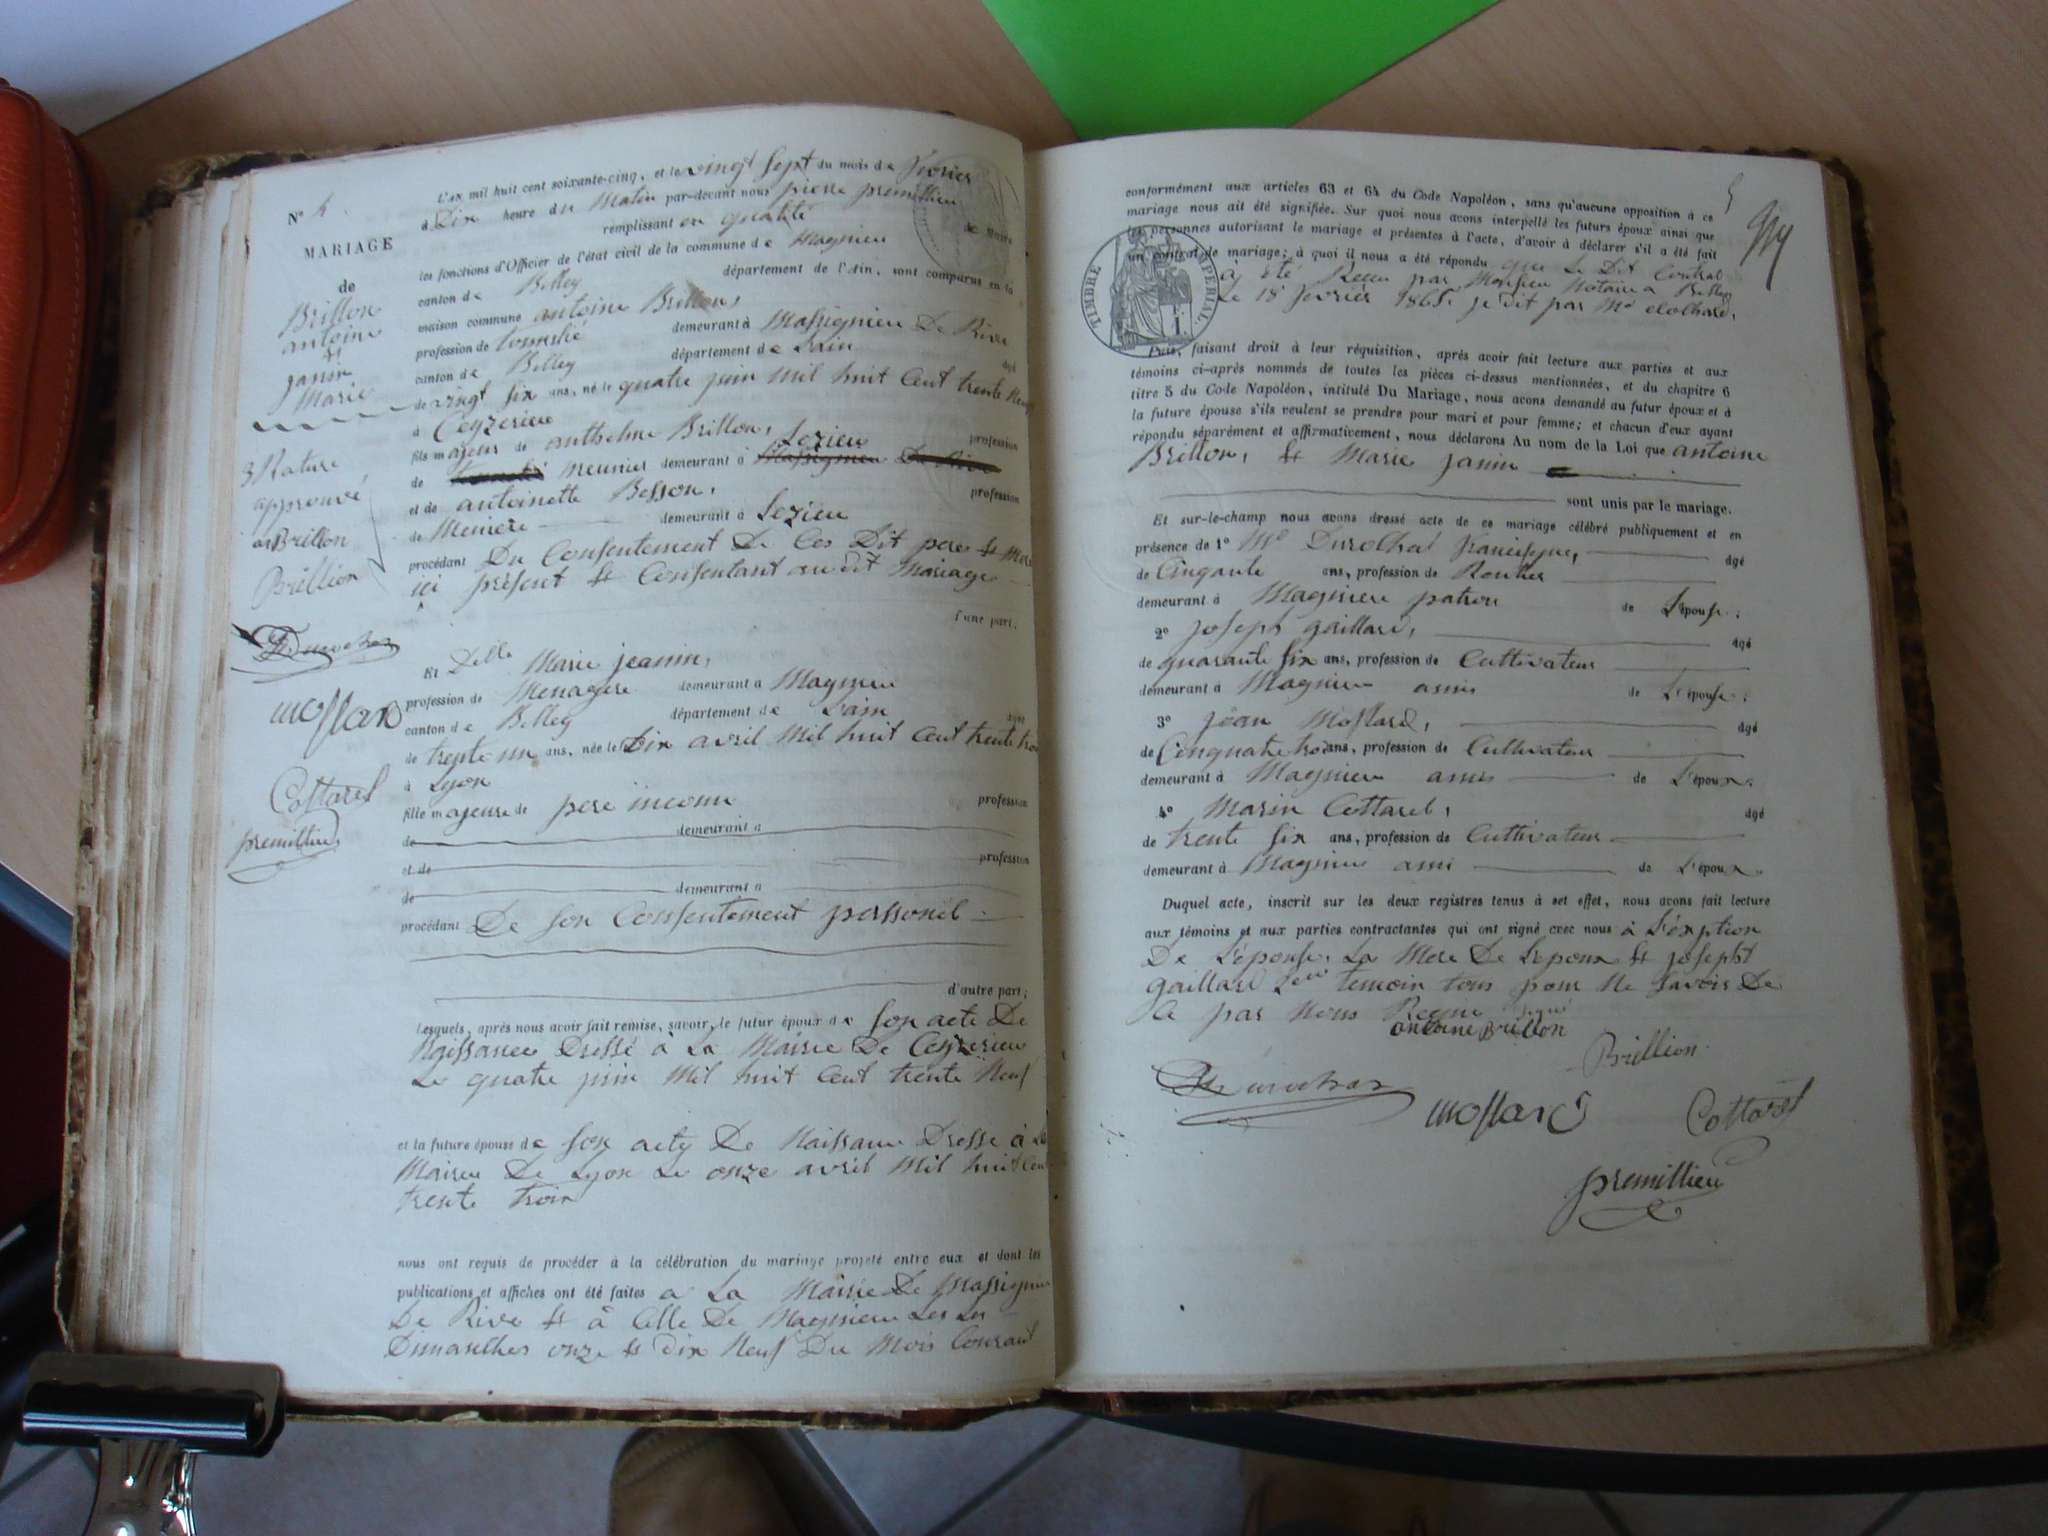 N° 4
MARIAGE
de
Brillon
antoine
et
janin
Marie
3 Rature
approuvé
an Brillon
Brillion
Durochat
mollard
Cottaret
premillieu
L'an mil huit cent soixante-cinq, et le vingt sept du mois de fevrier
à Dix heure du Matin par-devant nous pierre premillieu
remplissant en qualité de Maire
les fonctions d'Officier de l'état civil de la commune de Magnieu
canton de Belley département de l'Ain, sont comparus en la
maison commune antoine Brillon,
profession de demeurant à Massignieu De Rive
canton de Belley département de Lain âgé
de vingt six ans, né le quatre juin Mil huit Cent trente Neuf
à Ceyzerieu
fils majeur de anthelme Brillon, profession
de meunier demeurant à Massignieu De Rive Lezieu
et de antoinette Besson, profession
de Meniere demeurant à Lezieu
procédant Du Consentement De Ces Dit pere et Mere
ici présent et Consentant au dit Mariage
d'une part;
Et Delle Marie jeanin,
profession de Menagere demeurant à Magnieu
canton de Belley département de Lain âgée
de trente un ans, née le Dix avril Mil huit Cent trente trois
à Lyon
fille majeure de pere inconu profession
de demeurant à
et de profession
de demeurant à
procédant De son Consentement personel
d'autre part;
Lesquels, après nous avoir fait remise, savoir, le futur époux de son acte De
Naissance Dressé à La Mairie De Ceyzerieu
Le quatre juin Mil huit Cent trente Neuf
et la future épouse de son acte De Naissance Dresse à La
Mairie De Lyon Le onze avril Mil huit Cent
trente trois
nous ont requis de procéder à la célébration du mariage projeté entre eux et dont les
publications et affiches ont été faites a La Mairie De Massignieu
De Rive et à Celle De Magnieu Les
Dimanches onze et dix Neuf Du Mois Courant
5
conformément aux articles 63 et 64 du Code Napoléon, sans qu'aucune opposition à ce
mariage nous ait été signifiée. Sur quoi nous avons interpellé les futurs époux ainsi que
les personnes autorisant le mariage et présentes à l'acte, d'avoir à déclarer s'il a été fait
un contrat de mariage; à quoi il nous a été répondu que Le Dit Contrat
à été Recu par Monsieur Notaire a Belley
Le 18 fevrier 1865.
TIMBRE IMPERIAL
Puis, faisant droit à leur réquisition, après avoir fait lecture aux parties et aux
témoins ci-après nommés de toutes les pièces ci-dessus mentionnées, et du chapitre 6
titre 5 du Code Napoléon, intitulé Du Mariage, nous avons demandé au futur époux et à
la future épouse s'ils veulent se prendre pour mari et pour femme; et chacun d'eux ayant
répondu séparément et affirmativement, nous déclarons Au nom de la Loi que antoine
Brillon, et Marie janin
sont unis par le mariage.
Et sur-le-champ nous avons dressé acte de ce mariage célébré publiquement et en
présence de 1° Mr Durochat francisque, âgé
de Cinqante ans, profession de Rentier
demeurant à Magnieu patron de L'épouse.
2° joseph gaillard, âgé
de quarante six ans, profession de Cultivateur
demeurant à Magnieu amis de L'épouse.
3° jean Mollard, âgé
de Cinquate trois ans, profession de Cultivateur
demeurant à Magnieu amis de L'époux.
4° Marin Cottaret, âgé
de trente six ans, profession de Cultivateur
demeurant à Magnieu ami de L'époux.
Duquel acte, inscrit sur les deux registres tenus à cet effet, nous avons fait lecture
aux témoins et aux parties contractantes qui ont signé avec nous à L'éxption
De L'épouse. La Mere De Lepoux et josepht
gaillard 2eme temoin tous pour Ne savoir De
Ce par Nous Requi
antoine Brillon
Brillion
Durochat
mollard
Cottaret
premillieu